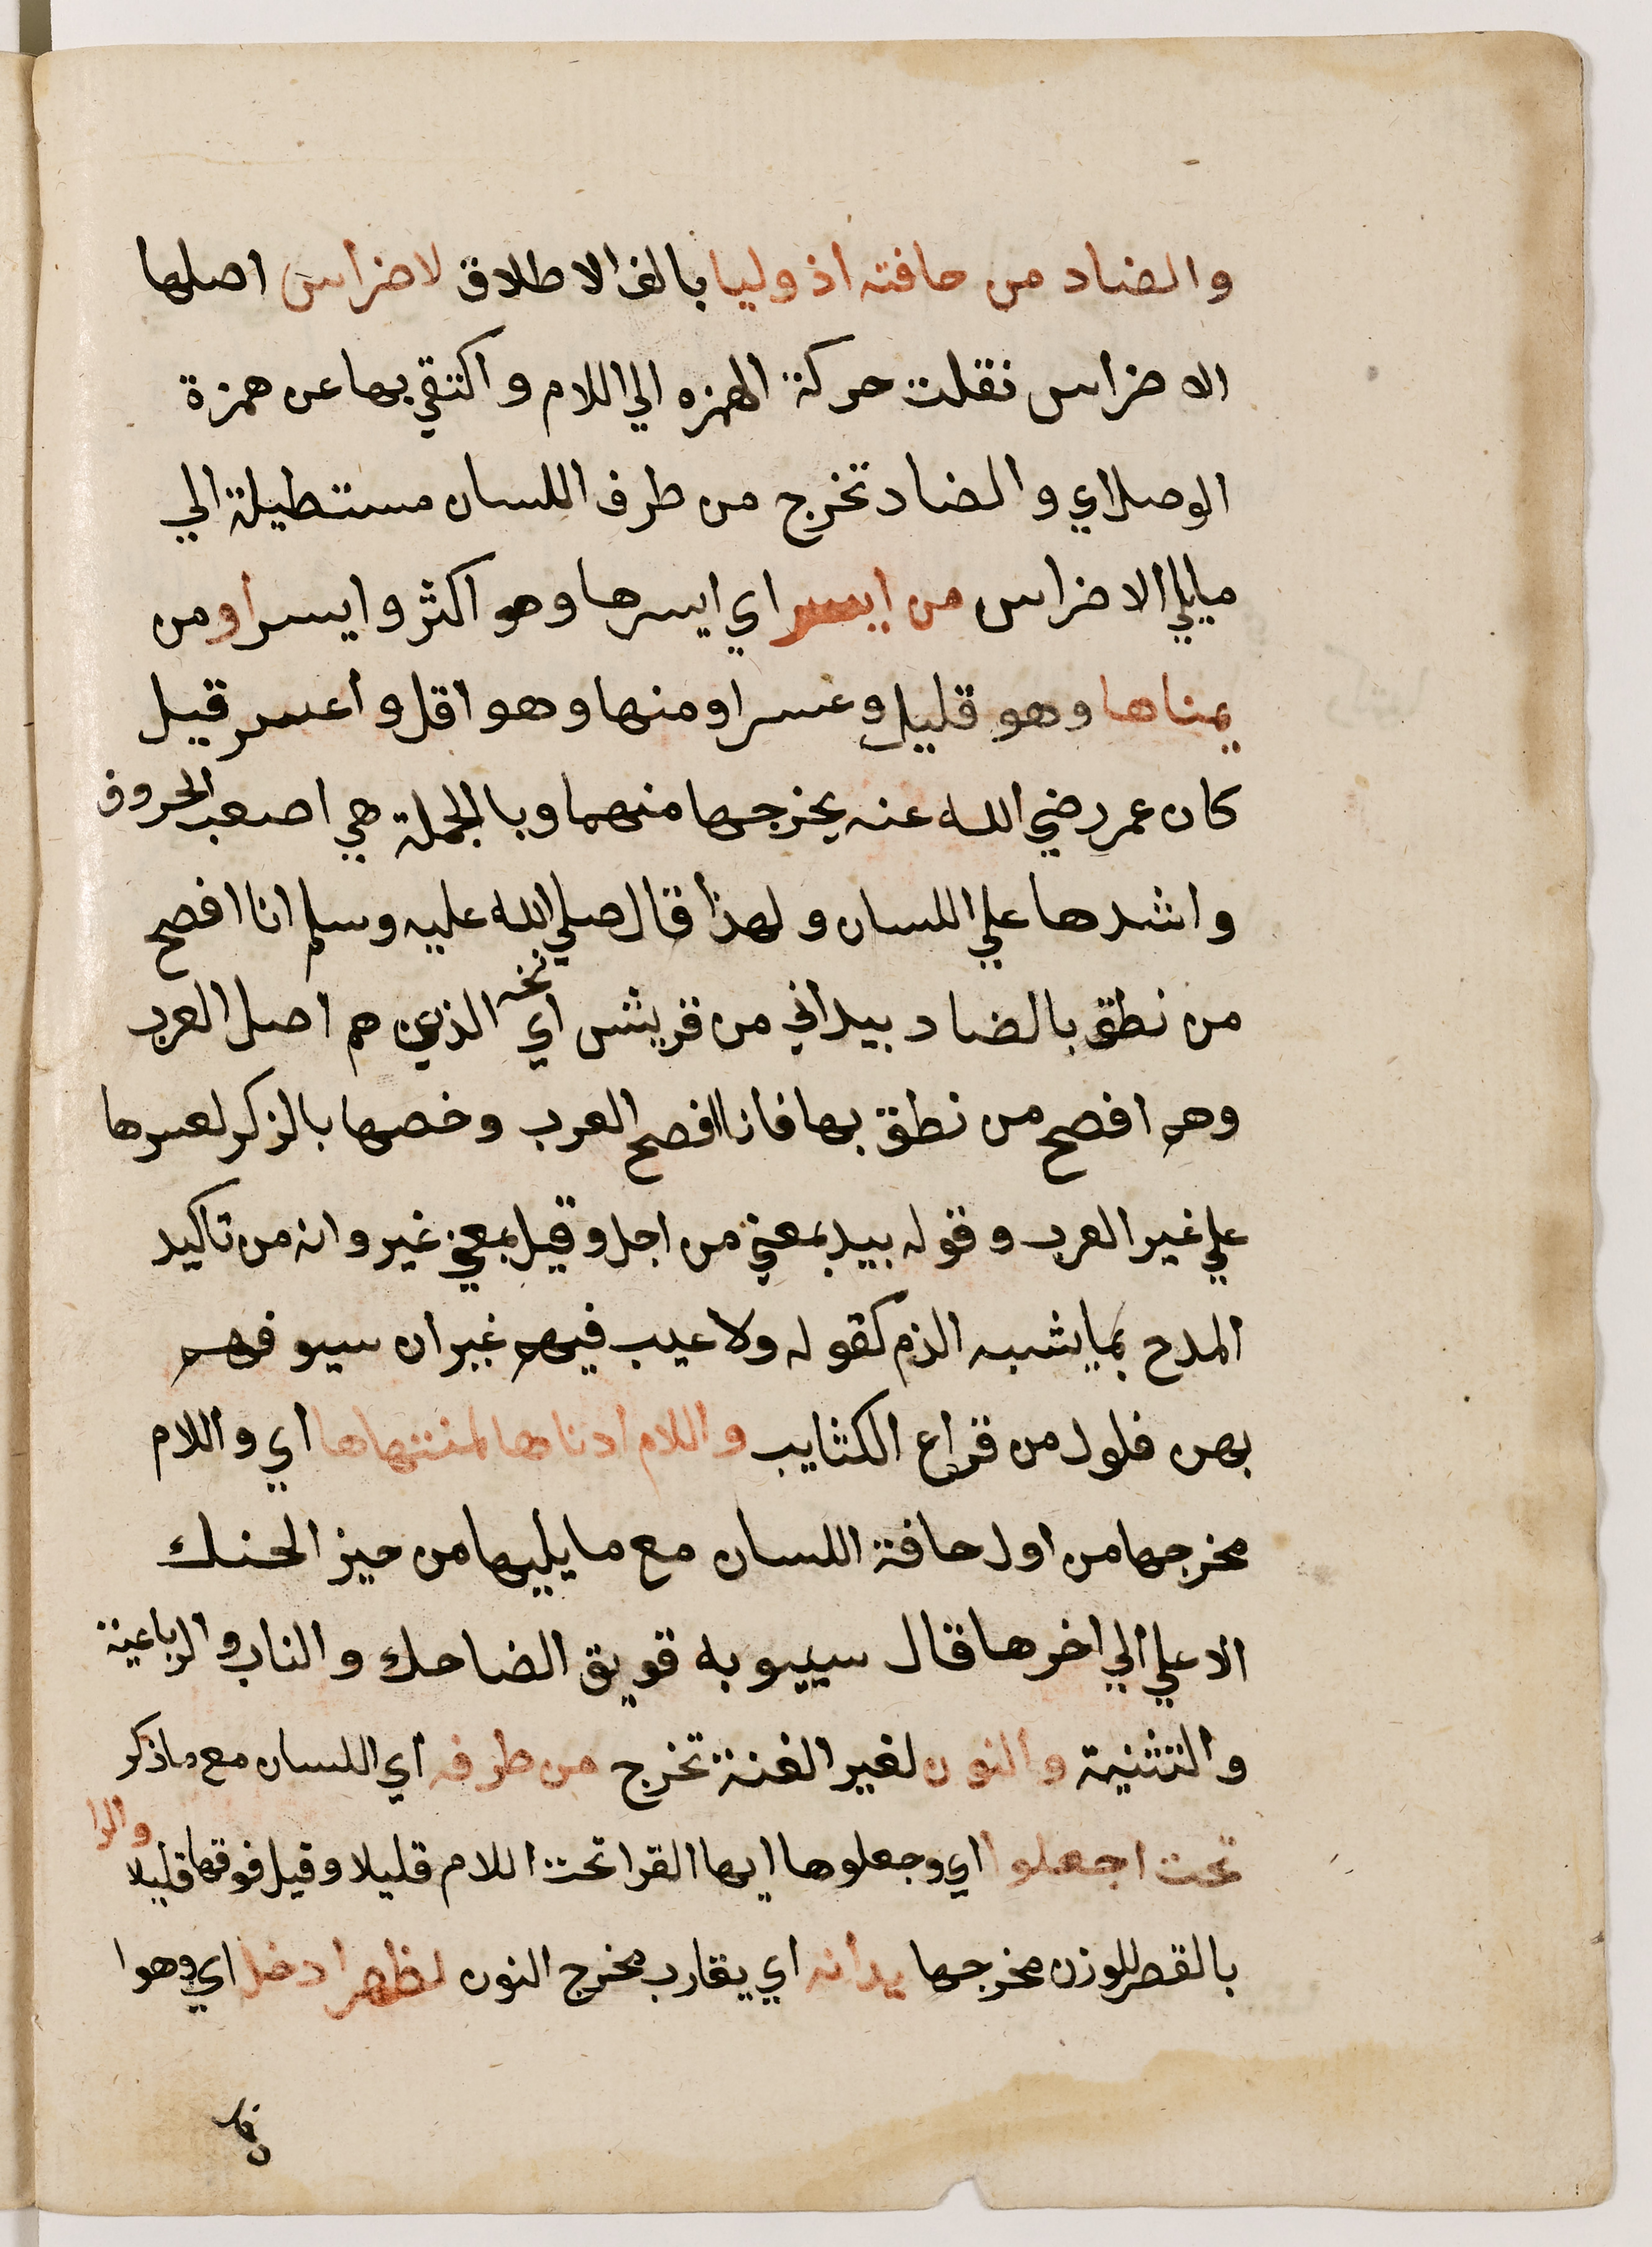 والضاد من حافته اذ وليا بالف الاطلاق لاضراس اصلها
الاضراس نقلت حركة الهمزه الي اللام واكتفي بها عن همزة
الوصل اي والضاد تخرج من طرف اللسان مستطيلة الي
مايلي الاضراس من ايسر اي ايسرها وهو اكثر وايسر او من
يمناها وهو قليل وعسر او منهما وهو اقل واعسر قيل
كان عمر رضي الله عنه يخرجها منهما وبالجملة هي اصعب الحروف
واشدها علي اللسان ولهذا قال صلي الله عليه وسلم انا افصح
من نطق بالضاد بيد اني من قريش اي الذين هم اصل العرب
وهم افصح من نطق بها فانا افصح العرب وخصها بالذكر لعسرها
علي غير العرب وقوله بيد بمعني من اجل وقيل بمعني غير وانه من تاكيد
المدح بما يشبه الذم كقوله ولا عيب فيهم غير ان سيوفهم
بهن فلول من قراع الكتايب واللام ادناها لمنتهاها اي واللام
مخرجها من اول حافة اللسان مع ما يليها من حيز الحنك
الاعلي الي اخرها قال سيبويه فويق الضاحك والناب والرباعية
والثنية والنون لغير الغنة تخرج من طرفه اي اللسان مع ماذكر
تحت اجعلوا اي وجعلوها ايها القرا تحت اللام قليلا وقيل فوقها قليلا والرا
بالقصر للوزن مخرجها يدانه اي يقارب مخرج النون لظهر ادخل اي وهوا